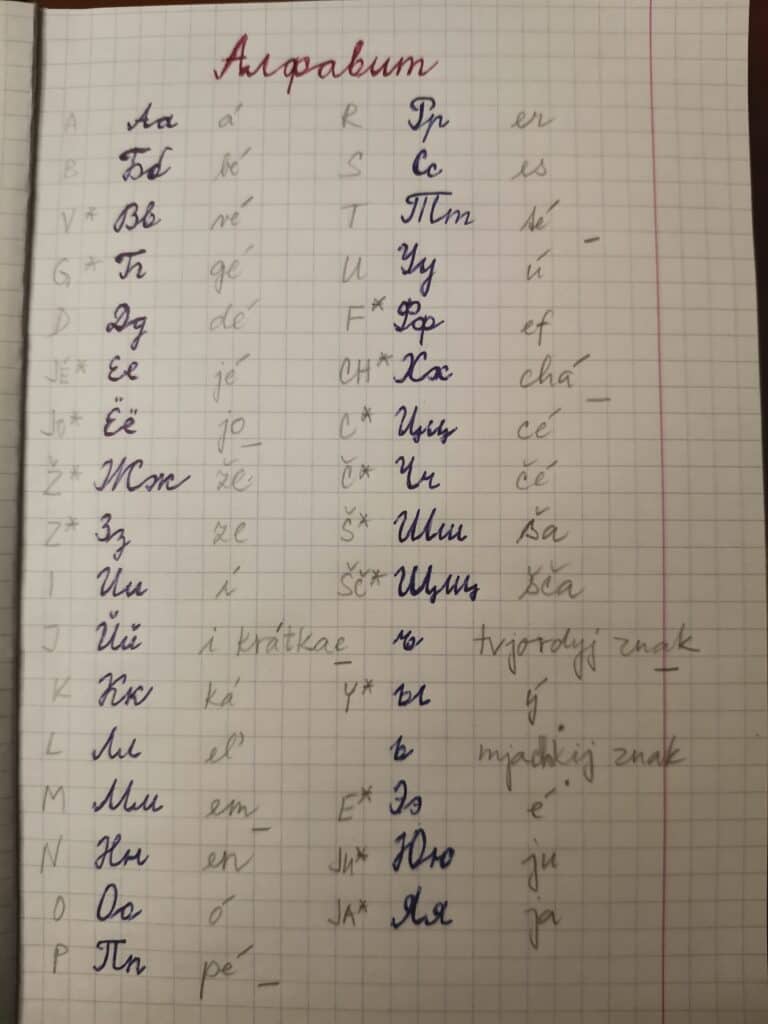 Алфавит
A Аа á
B Бб bé
V* Вв vé
G* Гг gé
D Дд dé
JÉ* Ее jé
Jo* Ёё jo
Ž* Жж že
Z* Зз ze
I Ии í
J Йй i krátkae
K Кк ká
L Лл el'
M Мм em
N Нн en
O Оо ó
P Пп pé
R Рр er
S Сс es
T Тт té
U Уу ú
F* Фф ef
CH* Хх chá
C* Цц cé
Č* Чч čé
Š* Шш ša
ŠČ* Щщ šča
ъ tvjordyj znak
Y* ы ý
ь mjachkij znak
E* Ээ é
JU* Юю ju
JA* Яя ja